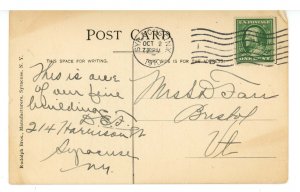 POST CARD
THIS SPACE FOR WRITING.
THIS SIDE IS FOR THE ADDRESS.
OCT 2
U.S. POSTAGE
ONE CENT
This is one
of our fine
buildings
214 Harrison St
Syracuse
NY.
Mrs A D Farr
Bristol
Vt
Rudolph Bros., Manufacturers, Syracuse, N. Y.